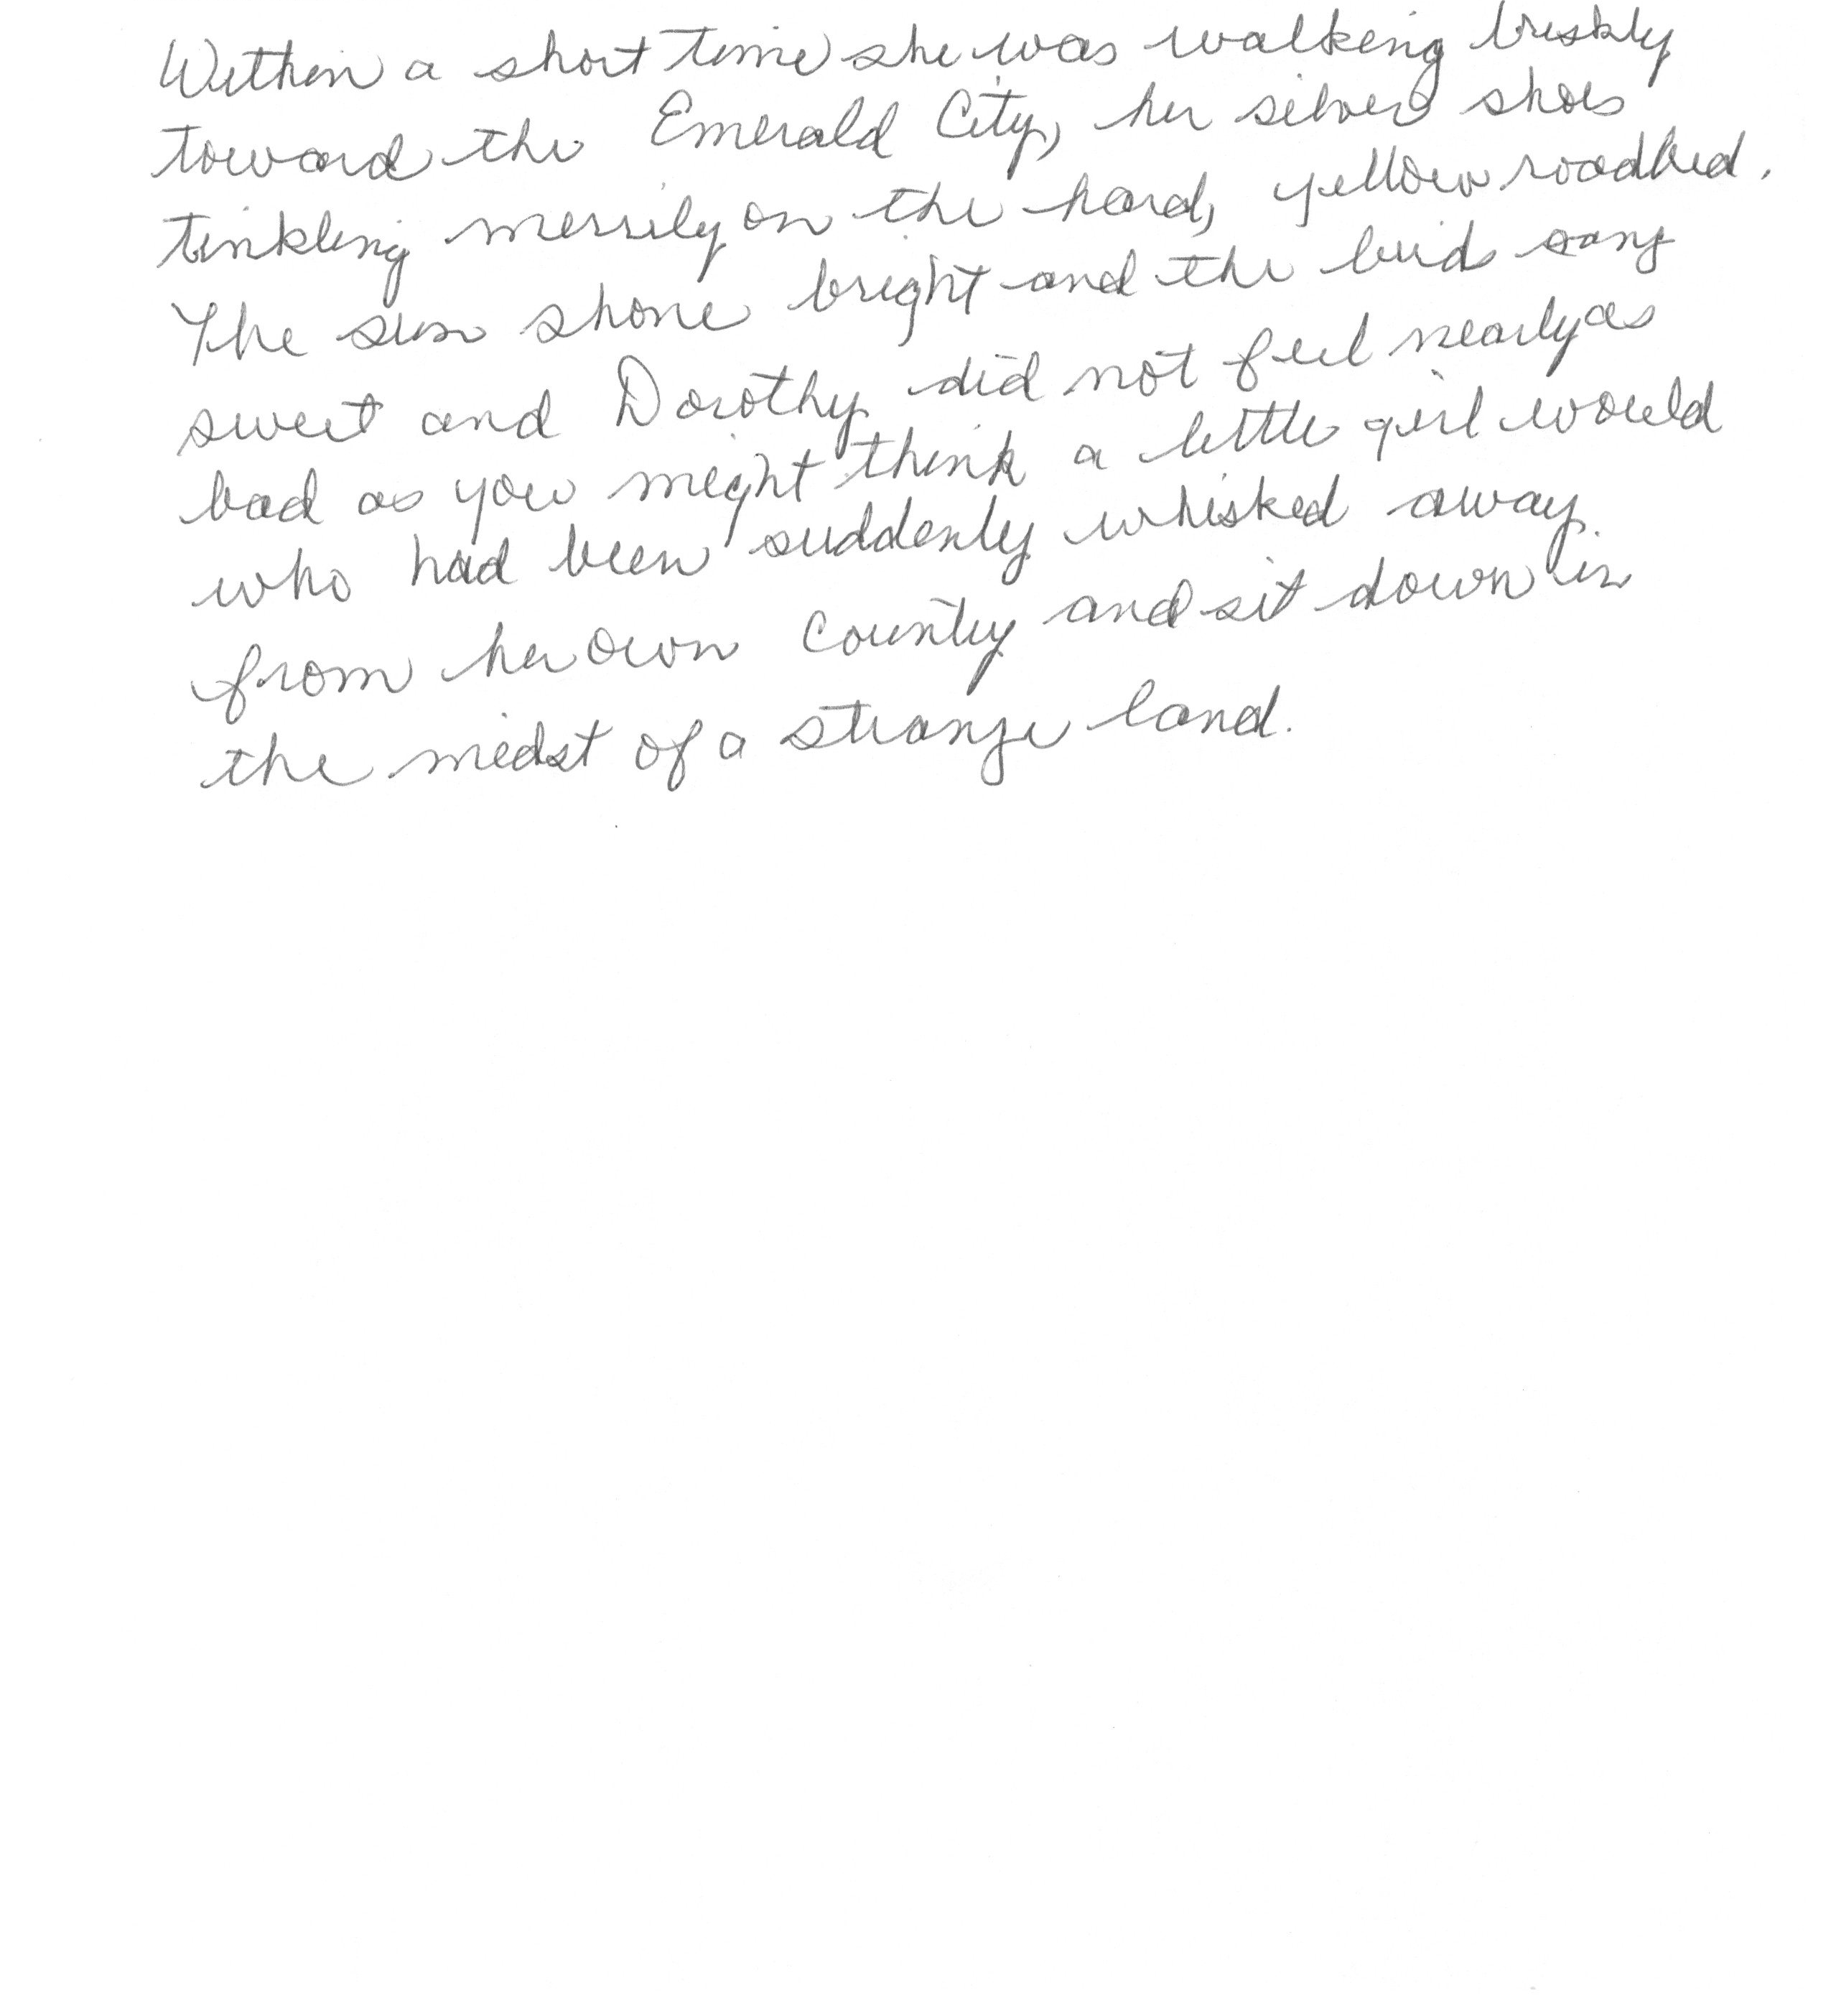 Within a short time she was walking briskly
toward the Emerald City, her silver shoes
tinkling merrily on the hard, yellow roadbed.
The sun shone bright and the birds sang
sweet and Dorothy did not feel nearly as
bad as you might think a little girl would
who had been suddenly whisked away
from her own country and sit down in
the midst of a strange land.